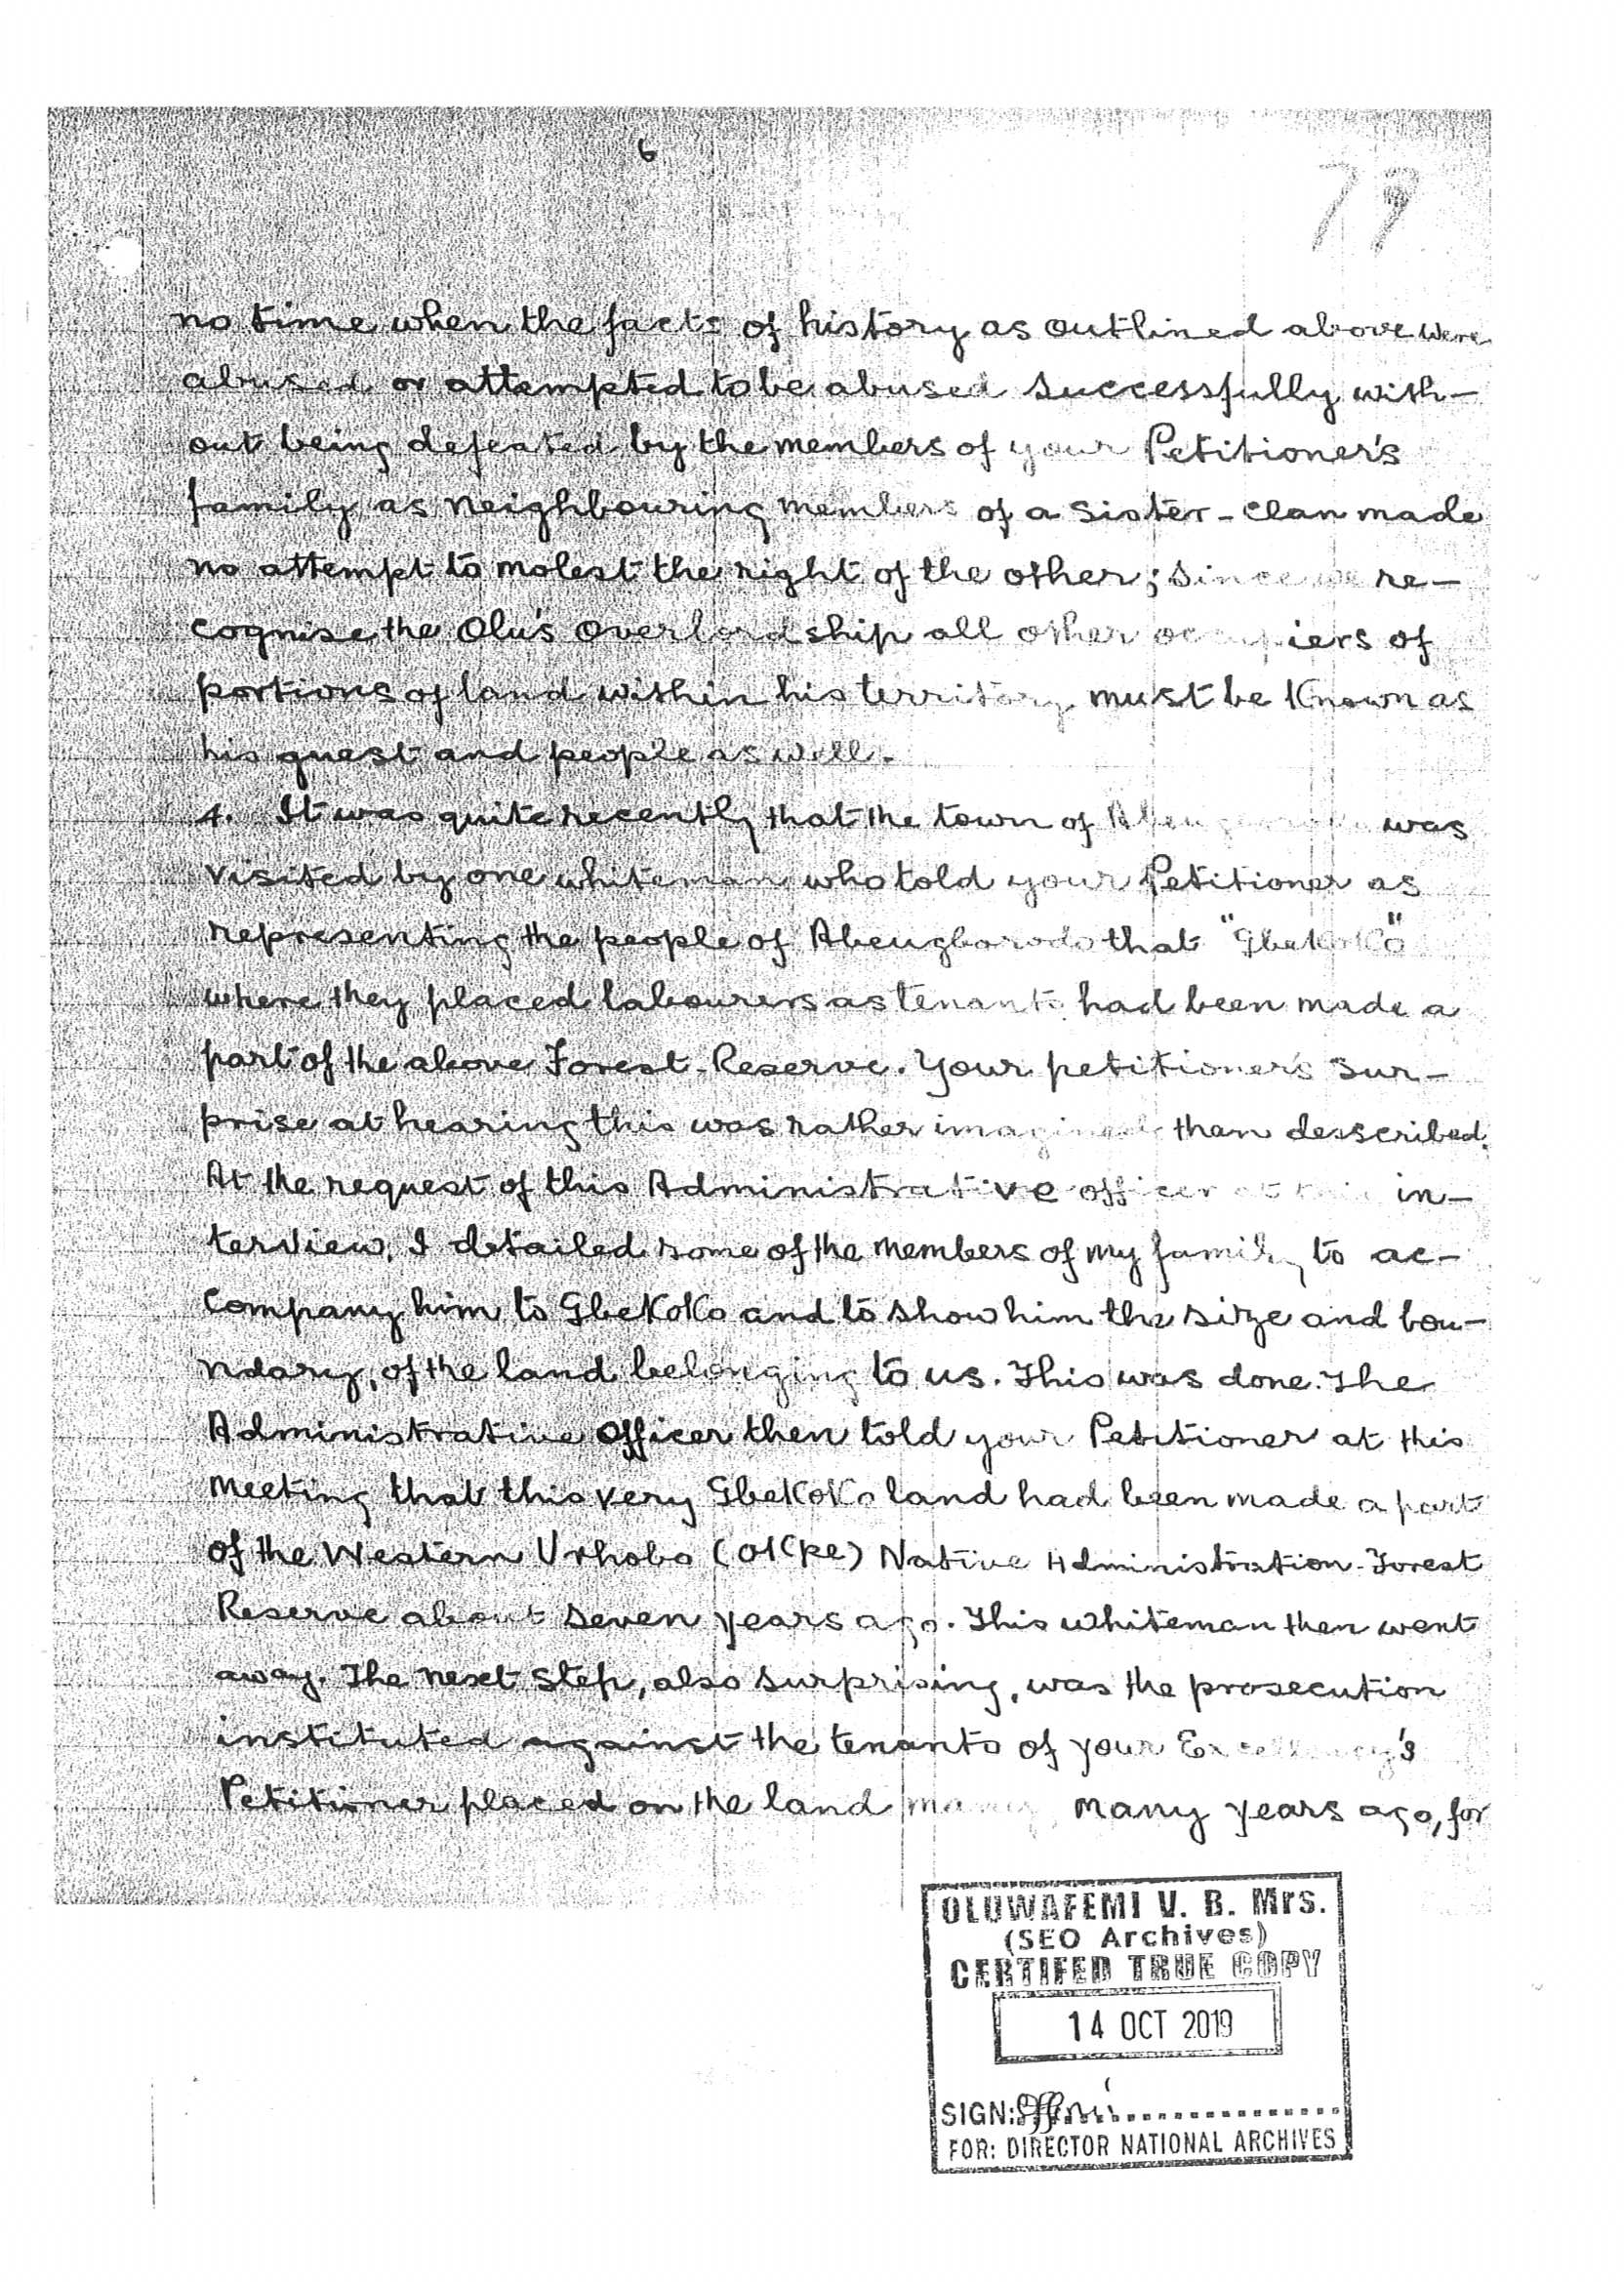 6
79
no time when the facts of history as outlined above were
abused or attempted to be abused successfully with-
out being defeated by the members of your Petitioner's
family as neighbouring members of a sister-clan made
no attempt to molest the right of the other; since we re-
cognise the Olu's overlordship all other occupiers of
portions of land within his territory must be known as
his guest and people as well.
4. It was quite recently that the town of was
visited by one whiteman who told your Petitioner as
representing the people of Abeugborodo that "Gbekoko"
where they placed labourers as tenants had been made a
part of the above Forest-Reserve. Your petitioner's sur-
prise at hearing this was rather imagined than described.
At the request of this Administrative officer at this in-
terview, I detailed some of the members of my family to ac-
company him to Gbekoko and to show him the size and bou-
ndary, of the land belonging to us. This was done. The
Administrative Officer then told your Petitioner at this
meeting that this very Gbekoko land had been made a part
of the Western Urhobo (Okpe) Native Administration-Forest
Reserve about seven years ago. This whiteman then went
away. The next step, also surprising, was the prosecution
instituted against the tenants of your Excellency's
Petitioner placed on the land many, many years ago, for
OLUWAFEMI V. B. Mrs.
(SEO Archives)
CERTIFED TRUE COPY
14 OCT 2019
SIGN:
FOR: DIRECTOR NATIONAL ARCHIVES